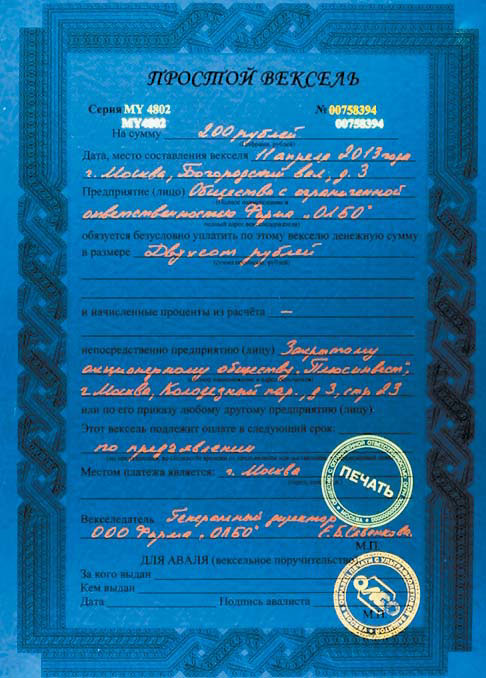 ПРОСТОЙ ВЕКСЕЛЬ
Серия MY 4802 № 00758394
MY4802 00758394
На сумму 200 рублей
Дата, место составления векселя 11 апреля 2013 года
г. Москва, Богородский вал, д. 3
Предприятие (лицо) Общество с ограниченной
ответственностью Фирма „ОЛБО"
обязуется безусловно уплатить по этому векселю денежную сумму
в размере Двухсот рублей
и начисленные проценты из расчёта —
непосредственно предприятию (лицу) Закрытому
акционерному обществу „Плюсинвест",
г. Москва, Колодезный пер., д 3, стр 23
или по его приказу любому другому предприятию (лицу).
Этот вексель подлежит оплате в следующий срок:
по предъявлении
Местом платежа является: г. Москва
ПЕЧАТЬ
Векселедатель Генеральный директор
ООО Фирма „ОЛБО"
М.П.
ДЛЯ АВАЛЯ (вексельное поручительство)
За кого выдан
Кем выдан
Дата Подпись авалиста
М.П.